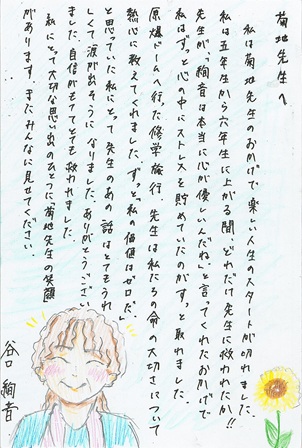 菊地先生へ
私は菊地先生のおかげで、楽しい人生のスタートが切れました。
私は五年生から六年生に上がる間、どれだけ先生に救われたか!!
先生が、「絢音は本当に心が優しいんだね」と言ってくれたおかげで
私はずっと心の中にストレスを貯めていたのがすっと取れました。
原爆ドームへ行った修学旅行。先生は私たちの命の大切さについて
熱心に教えてくれました。ずっと「私の価値はゼロだ。」
と思っていた私にとって先生のあの話はとてもうれ
しくて涙が出そうになりました。ありがとうござい
ました。自信がもててとても救われました。
私にとって大切な思い出のひとつに菊地先生の笑顔
があります。またみんなに見せてください。
谷口 絢音